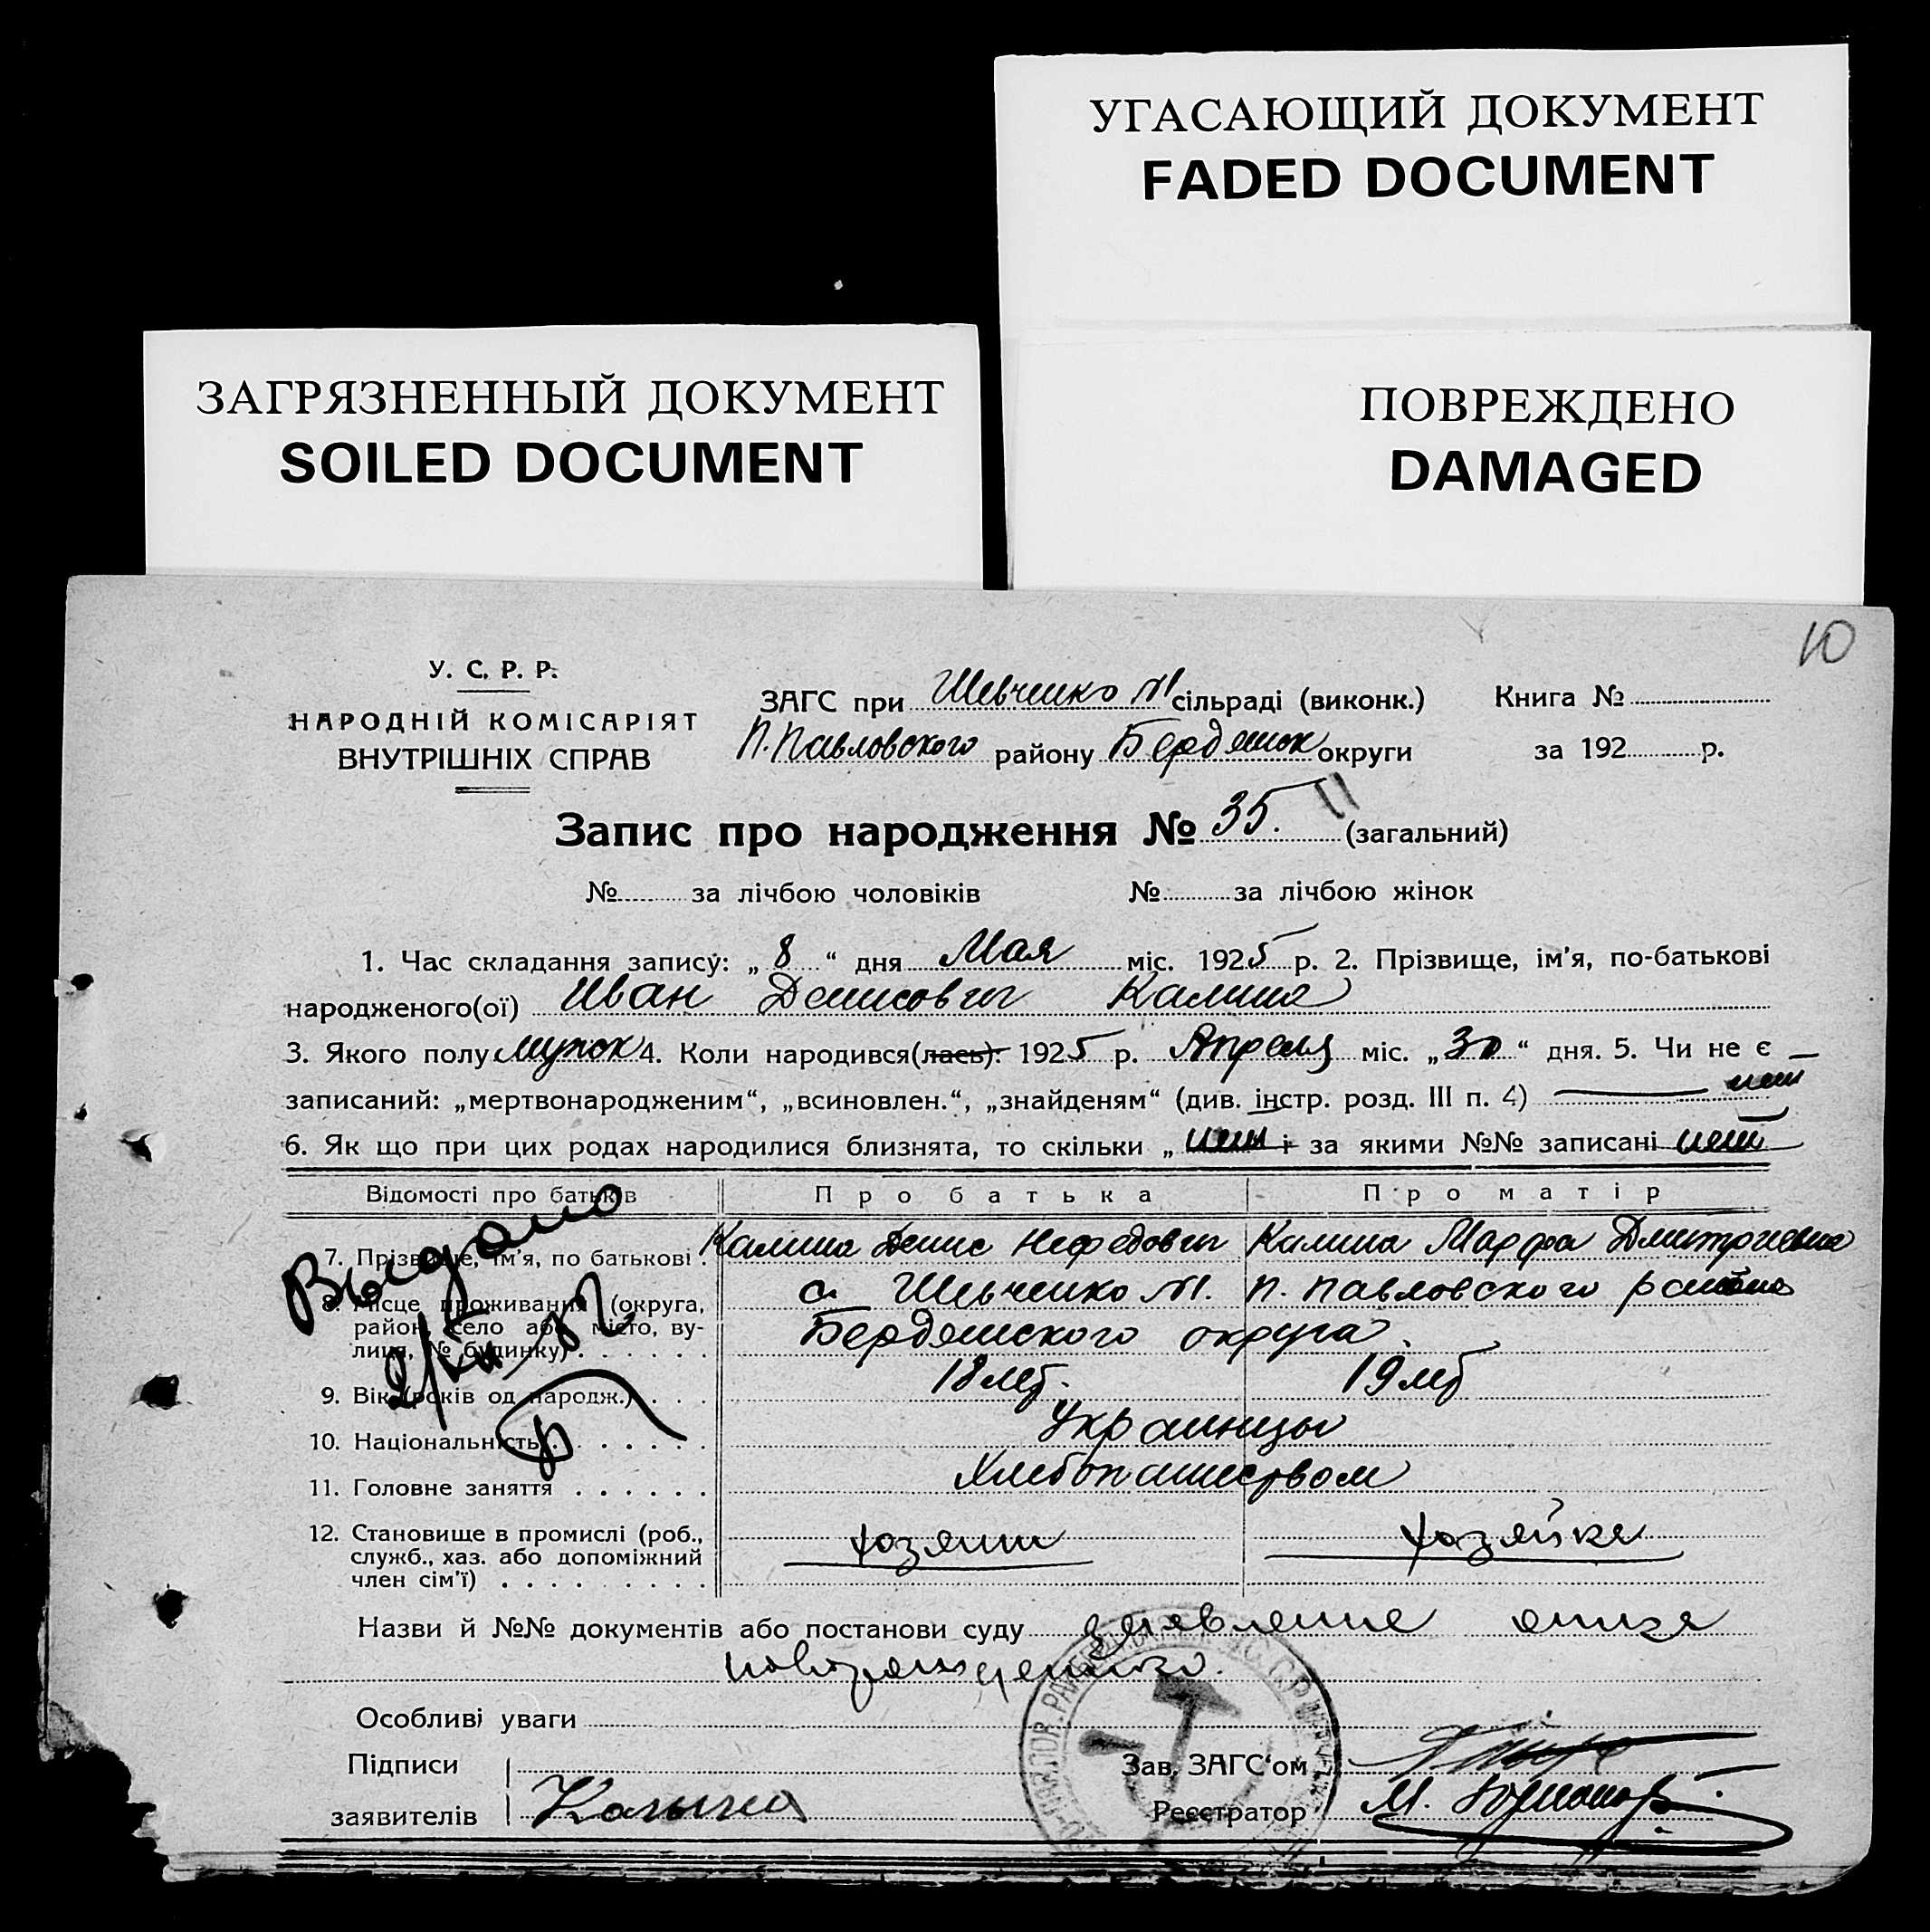 УГАСАЮЩИЙ ДОКУМЕНТ
FADED DOCUMENT
ЗАГРЯЗНЕННЫЙ ДОКУМЕНТ
SOILED DOCUMENT
ПОВРЕЖДЕНО
DAMAGED
10
У. С. Р. Р.
НАРОДНІЙ КОМІСАРІЯТ
ВНУТРІШНІХ СПРАВ
ЗАГС при Шевченко №1 сільраді (виконк.)
П. Павловского району Бердянск округи
Книга №
за 192 р.
Запис про народження № 35. (загальний)
№ за лічбою чоловіків № за лічбою жінок
1. Час складання запису: „ 8 “ дня Мая міс. 1925 р. 2. Прізвище, ім’я, по-батькові
народженого(ої) Иван Денисович Калина
3. Якого полу мужск 4. Коли народився(лась): 1925 р. Апреля міс. „ 30 “ дня. 5. Чи не є
записаний: „мертвонародженим“, „всиновлен.“, „знайденям“ (див. інстр. розд. III п. 4) нет
6. Як що при цих родах народилися близнята, то скільки „ нет і за якими №№ записані нет
Відомості про батьків Про батька Про матір
7. Прізвище, ім’я, по батькові . Калина Денис Нефедович Калина Марфа Дмитриевна
8. Місце проживання (округа, с. Шевченко №1. П. Павловского района
район, село або місто, ву- Бердянского округа.
лиця, № будинку)
9. Вік (років од народж.) 18 лет. 19 лет
10. Національність Украинцы
11. Головне заняття Хлебопашеством
12. Становище в промислі (роб., хозяин хозяйка
служб., хаз. або допоміжний
член сім’ї)
Выдано
Назви й №№ документів або постанови суду заявление отца
новорожденного.
Особливі уваги
Підписи
заявителів Калына
Зав. ЗАГС‘ом
Реєстратор М.